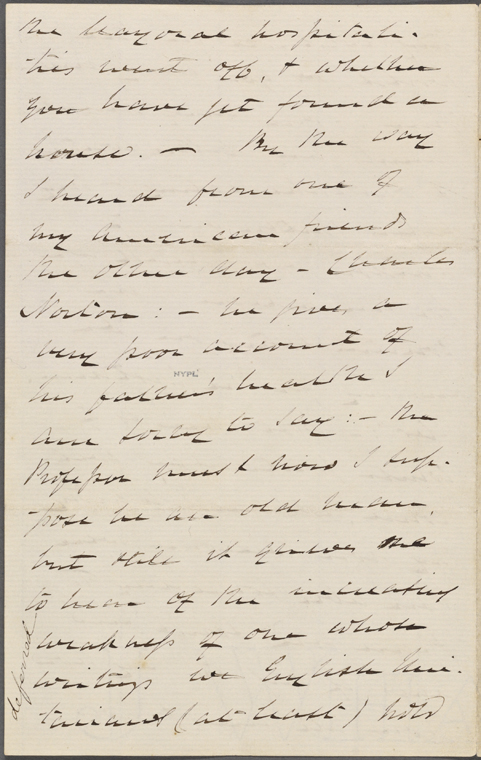 the Mayoral hospitali-
ties went off, & whether
you have yet found a
house. — By the way
I heard from one of
my American friends
the other day – Charles
Norton: – he gives a
very poor account of
NYPL
his father's health I
am sorry to say: – the
Professor must now I sup-
pose be an old man,
but still it grieves me
to hear of the increasing
weakness of one whose
writings we English Uni-
tarians (at least) hold
deferred